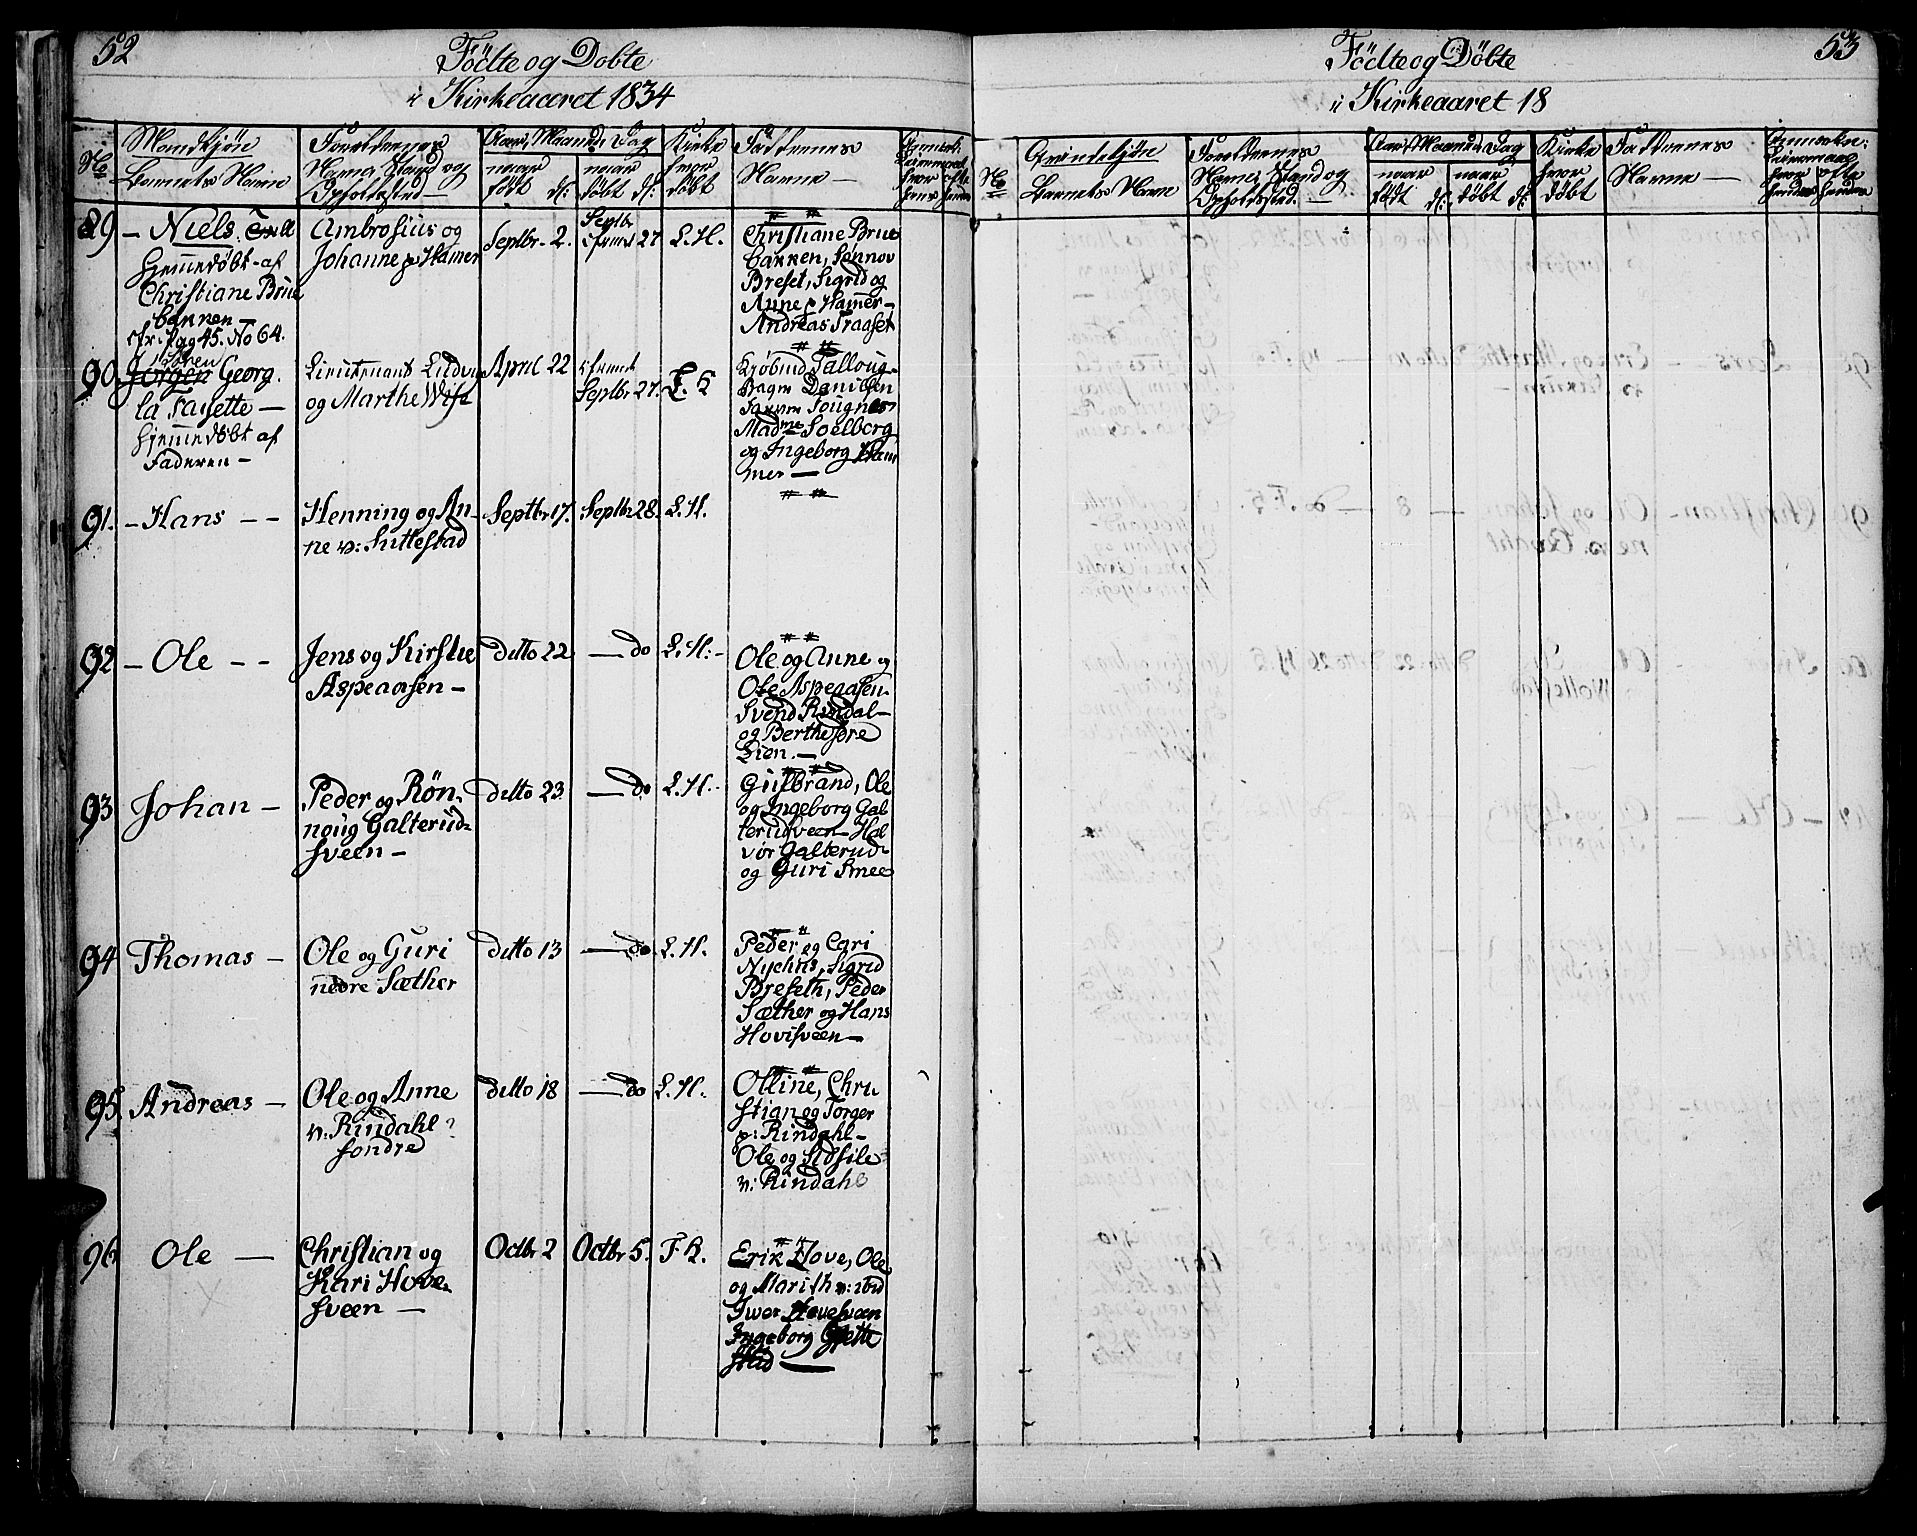 52
Födte og Döbte
i Kirkeaaret 1834
No
Mandkjön
Barnets Navn
Forældrenes
Navne, Stand og
Opholdssted
Aaret, Maaned, Dag
naar
födt
naar
döbt
Kirke
hvor
döbt
Faddernes
Navne —
89 — Niels.
Hjemmedöbt af
Christiane Brue
bakken —
cfr: Pag 45. No 64.
Ambrosius og
Johanne p Hamer
Septbr. 2.
Septbr
27
L. H.
Christiane Brue
bakken, Sönnov
Breset, Sigrid og
Anne p Hamer —
Andreas Tragset
90. Jörgen Georg.
la Fasette —
Hjemmedöbt af
Faderen —
Lieutenant Ludvig
og Marthe
April 22
Septbr 27.
Danielsen
Madme Soelberg
og Ingeborg Ham
mer —
91. — Hans — —
Henning og An-
ne n: Suttestad
Septbr 17.
Septbr 28.
L. H.
92 — Ole — —
Jens og Kirstie
Aspeaasen —
ditto 22
— do
L. H. —
Ole og Anne og
Ole Aspeaasen
Svend Rindal —
og Berthe söre
Lien. —
93 Johan —
Peder og Rön-
noug Galterud-
sveen —
ditto 23
— do
L. H.
Gulbrand, Ole
og Ingeborg Gal
terudsveen — Hal
vor Galterud
og Guri Smee
94 Thomas —
Ole og Guri
nedre Sæther
ditto 13
— do
L. H.
Peder og Cari
Nyehus, Sigrid
Breseth, Peder
Sæther og Hans
Hovisveen —
95. Andreas —
Ole og Anne
n: Rindahl
söndre
ditto 18
— do
L. H.
Olline, Chri
stian og Torger
p: Rindahl —
Ole og Sidsile
n: Rindahl
96 Ole —
Christian og
Kari Hove-
sveen —
Octbr 2
Octbr 5.
F. K.
Erik Hove, Ole
og Marith n: ibid
Iver Hovesveen
Ingeborg Gjette
stad —
53
Födte og Döbte
i Kirkeaaret 18
No
Qvindekjön
Barnets Navn
Forældrenes
Navne, Stand og
Opholdssted. —
Aaret, Maaned, Dag
naar
födt
naar
döbt
Kirke
hvor
döbt
Faddernes
Navne —